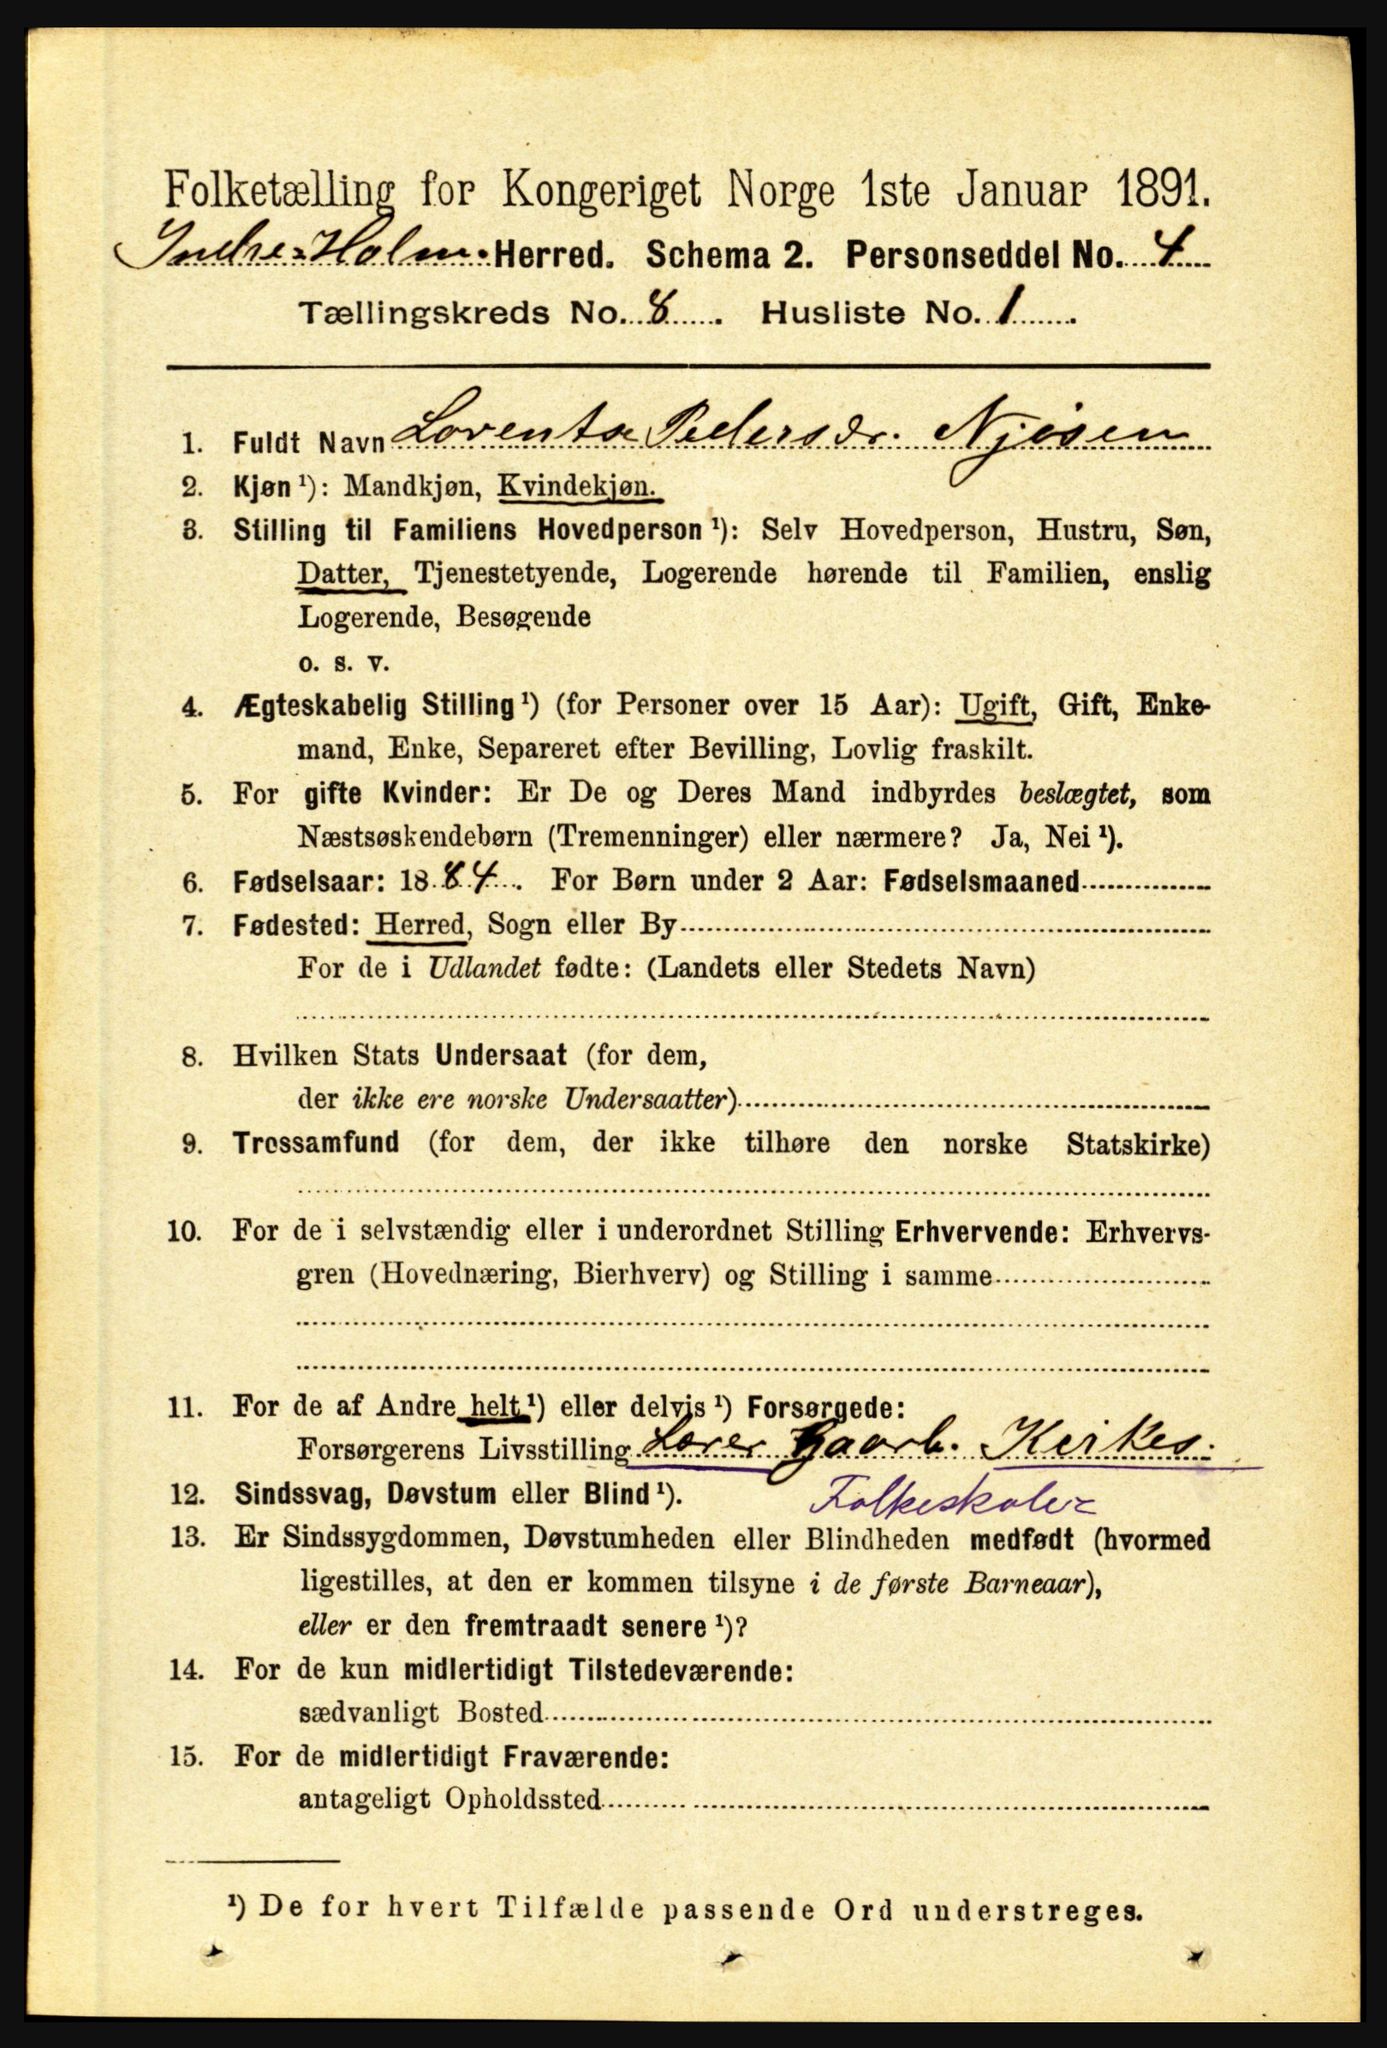 Folketælling for Kongeriget Norge 1ste Januar 1891.
Indre-Holm. Herred. Schema 2. Personseddel No. 4
Tællingskreds No. 8. Husliste No. 1.
1. Fuldt Navn Lorentse Pedersdr. Njøsen
2. Kjøn ¹): Mandkjøn, Kvindekjøn.
3. Stilling til Familiens Hovedperson ¹): Selv Hovedperson, Hustru, Søn,
Datter, Tjenestetyende, Logerende hørende til Familien, enslig
Logerende, Besøgende
o. s. v.
4. Ægteskabelig Stilling ¹) (for Personer over 15 Aar): Ugift, Gift, Enke-
mand, Enke, Separeret efter Bevilling, Lovlig fraskilt.
5. For gifte Kvinder: Er De og Deres Mand indbyrdes beslægtet, som
Næstsøskendebørn (Tremenninger) eller nærmere? Ja, Nei ¹).
6. Fødselsaar: 1884. For Børn under 2 Aar: Fødselsmaaned
7. Fødested: Herred, Sogn eller By
For de i Udlandet fødte: (Landets eller Stedets Navn)
8. Hvilken Stats Undersaat (for dem,
der ikke ere norske Undersaatter)
9. Trossamfund (for dem, der ikke tilhøre den norske Statskirke)
10. For de i selvstændig eller i underordnet Stilling Erhvervende: Erhvervs-
gren (Hovednæring, Bierhverv) og Stilling i samme
11. For de af Andre helt ¹) eller delvis ¹) Forsørgede:
Forsørgerens Livsstilling Lærer Gaarb. Kirkes.
12. Sindssvag, Døvstum eller Blind ¹). Folkeskoler
13. Er Sindssygdommen, Døvstumheden eller Blindheden medfødt (hvormed
ligestilles, at den er kommen tilsyne i de første Barneaar),
eller er den fremtraadt senere ¹)?
14. For de kun midlertidigt Tilstedeværende:
sædvanligt Bosted
15. For de midlertidigt Fraværende:
antageligt Opholdssted
¹) De for hvert Tilfælde passende Ord understreges.